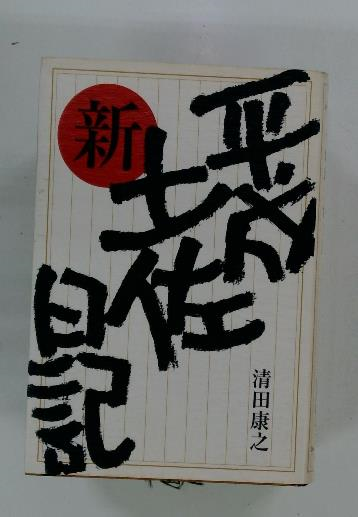 平成
新
土佐
日記
清田康之